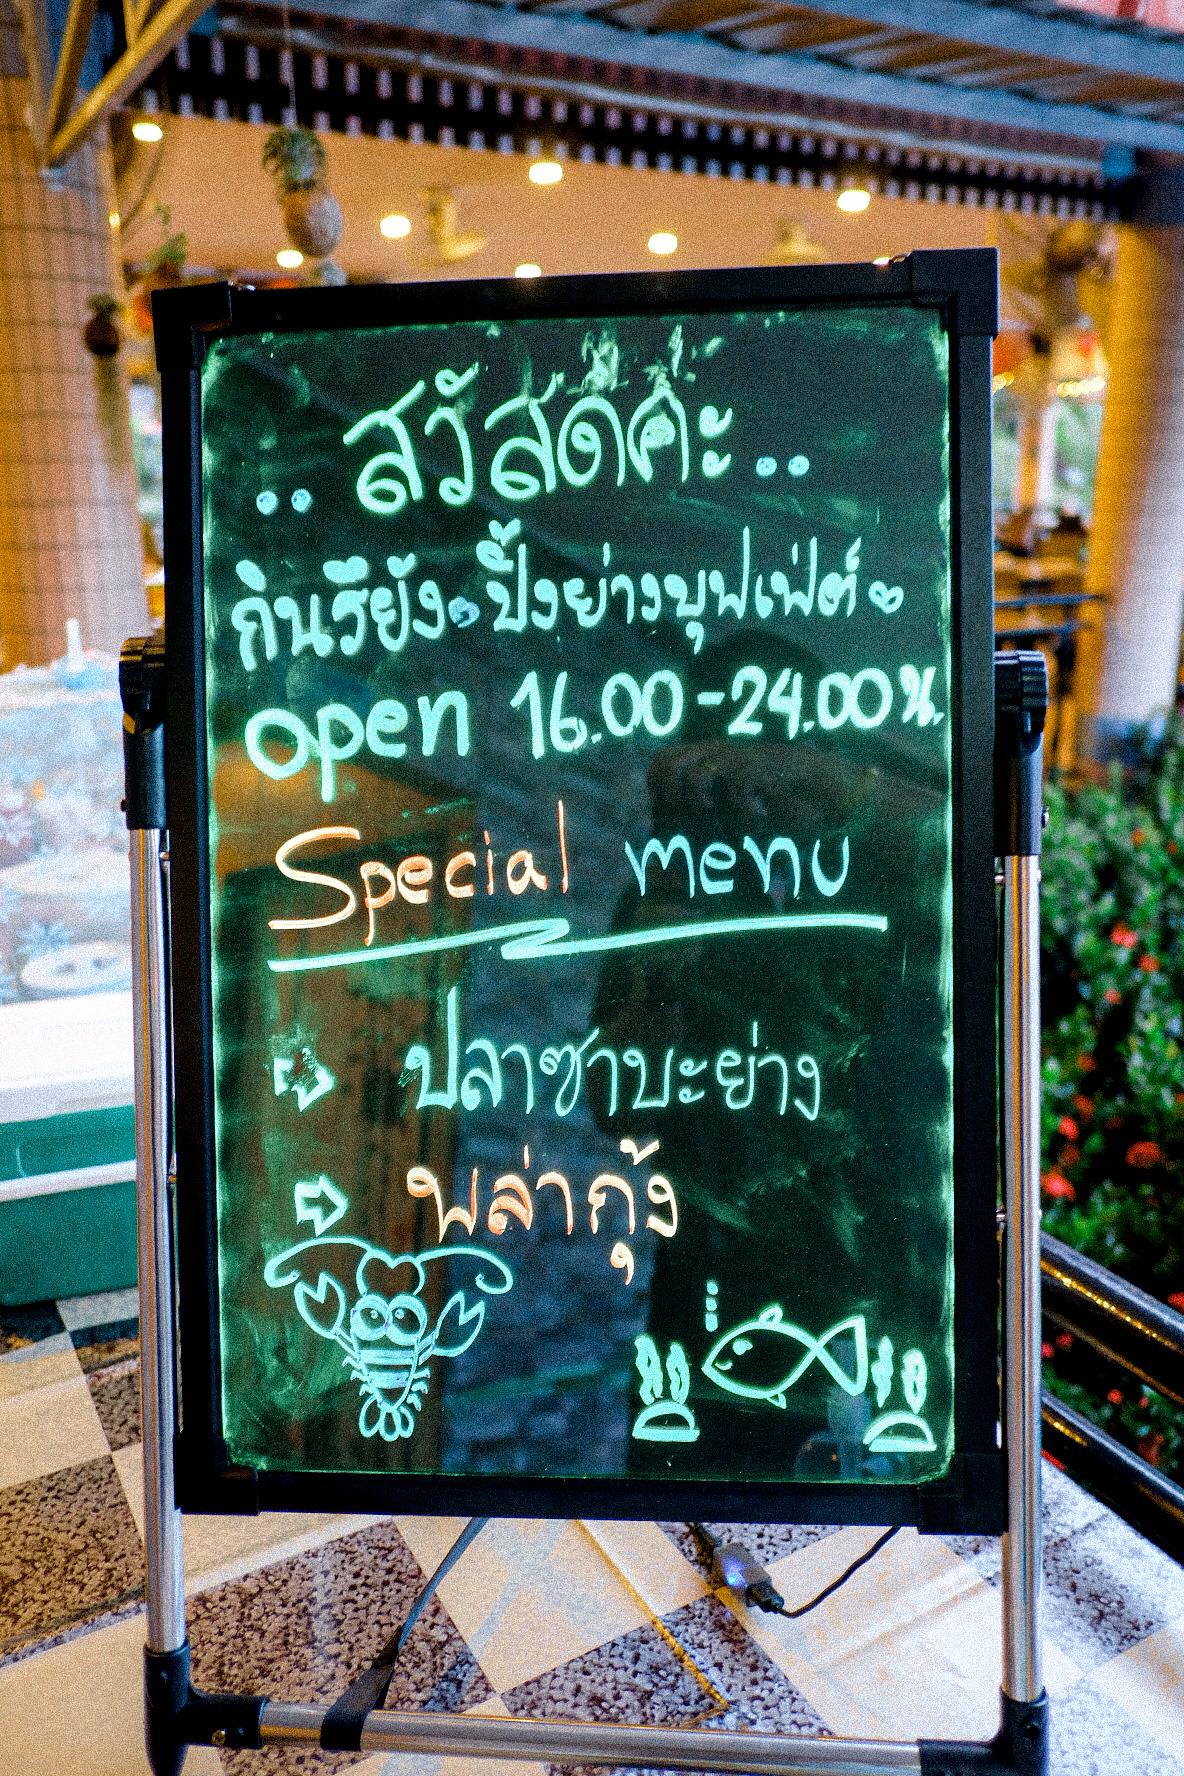 สวัสดีค่ะ
กินรึยัง ปิ้งย่างบุฟเฟ่ต์
open 16.00-24.00 น.
Special menu
ปลาซาบะย่าง
พล่ากุ้ง